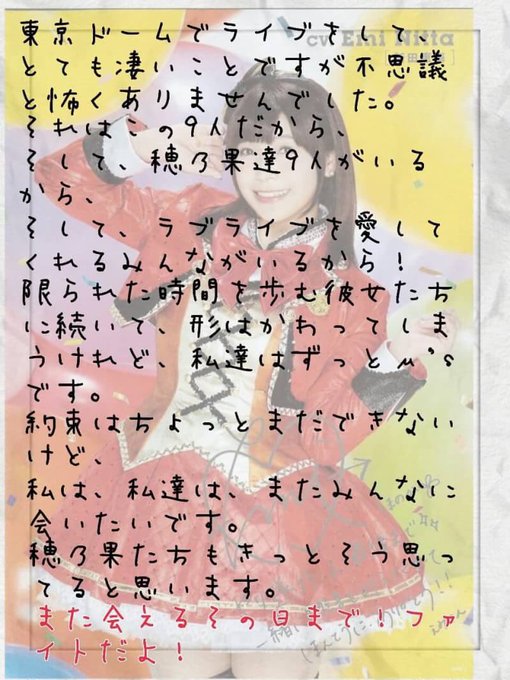 東京ドームでライブをして、
とても凄いことですが不思議
と怖くありませんでした。
それはこの9人だから、
そして、穂乃果達9人がいる
から、
そして、ラブライブを愛して
くれるみんながいるから！
限られた時間を歩む彼女たち
に続いて、形はかわってしま
うけれど、私達はずっとμ's
です。
約束はちょっとまだできない
けど、
私は、私達は、またみんなに
会いたいです。
穂乃果たちもきっとそう思っ
てると思います。
また会えるその日まで！ファ
イトだよ！
CV Emi Nitta